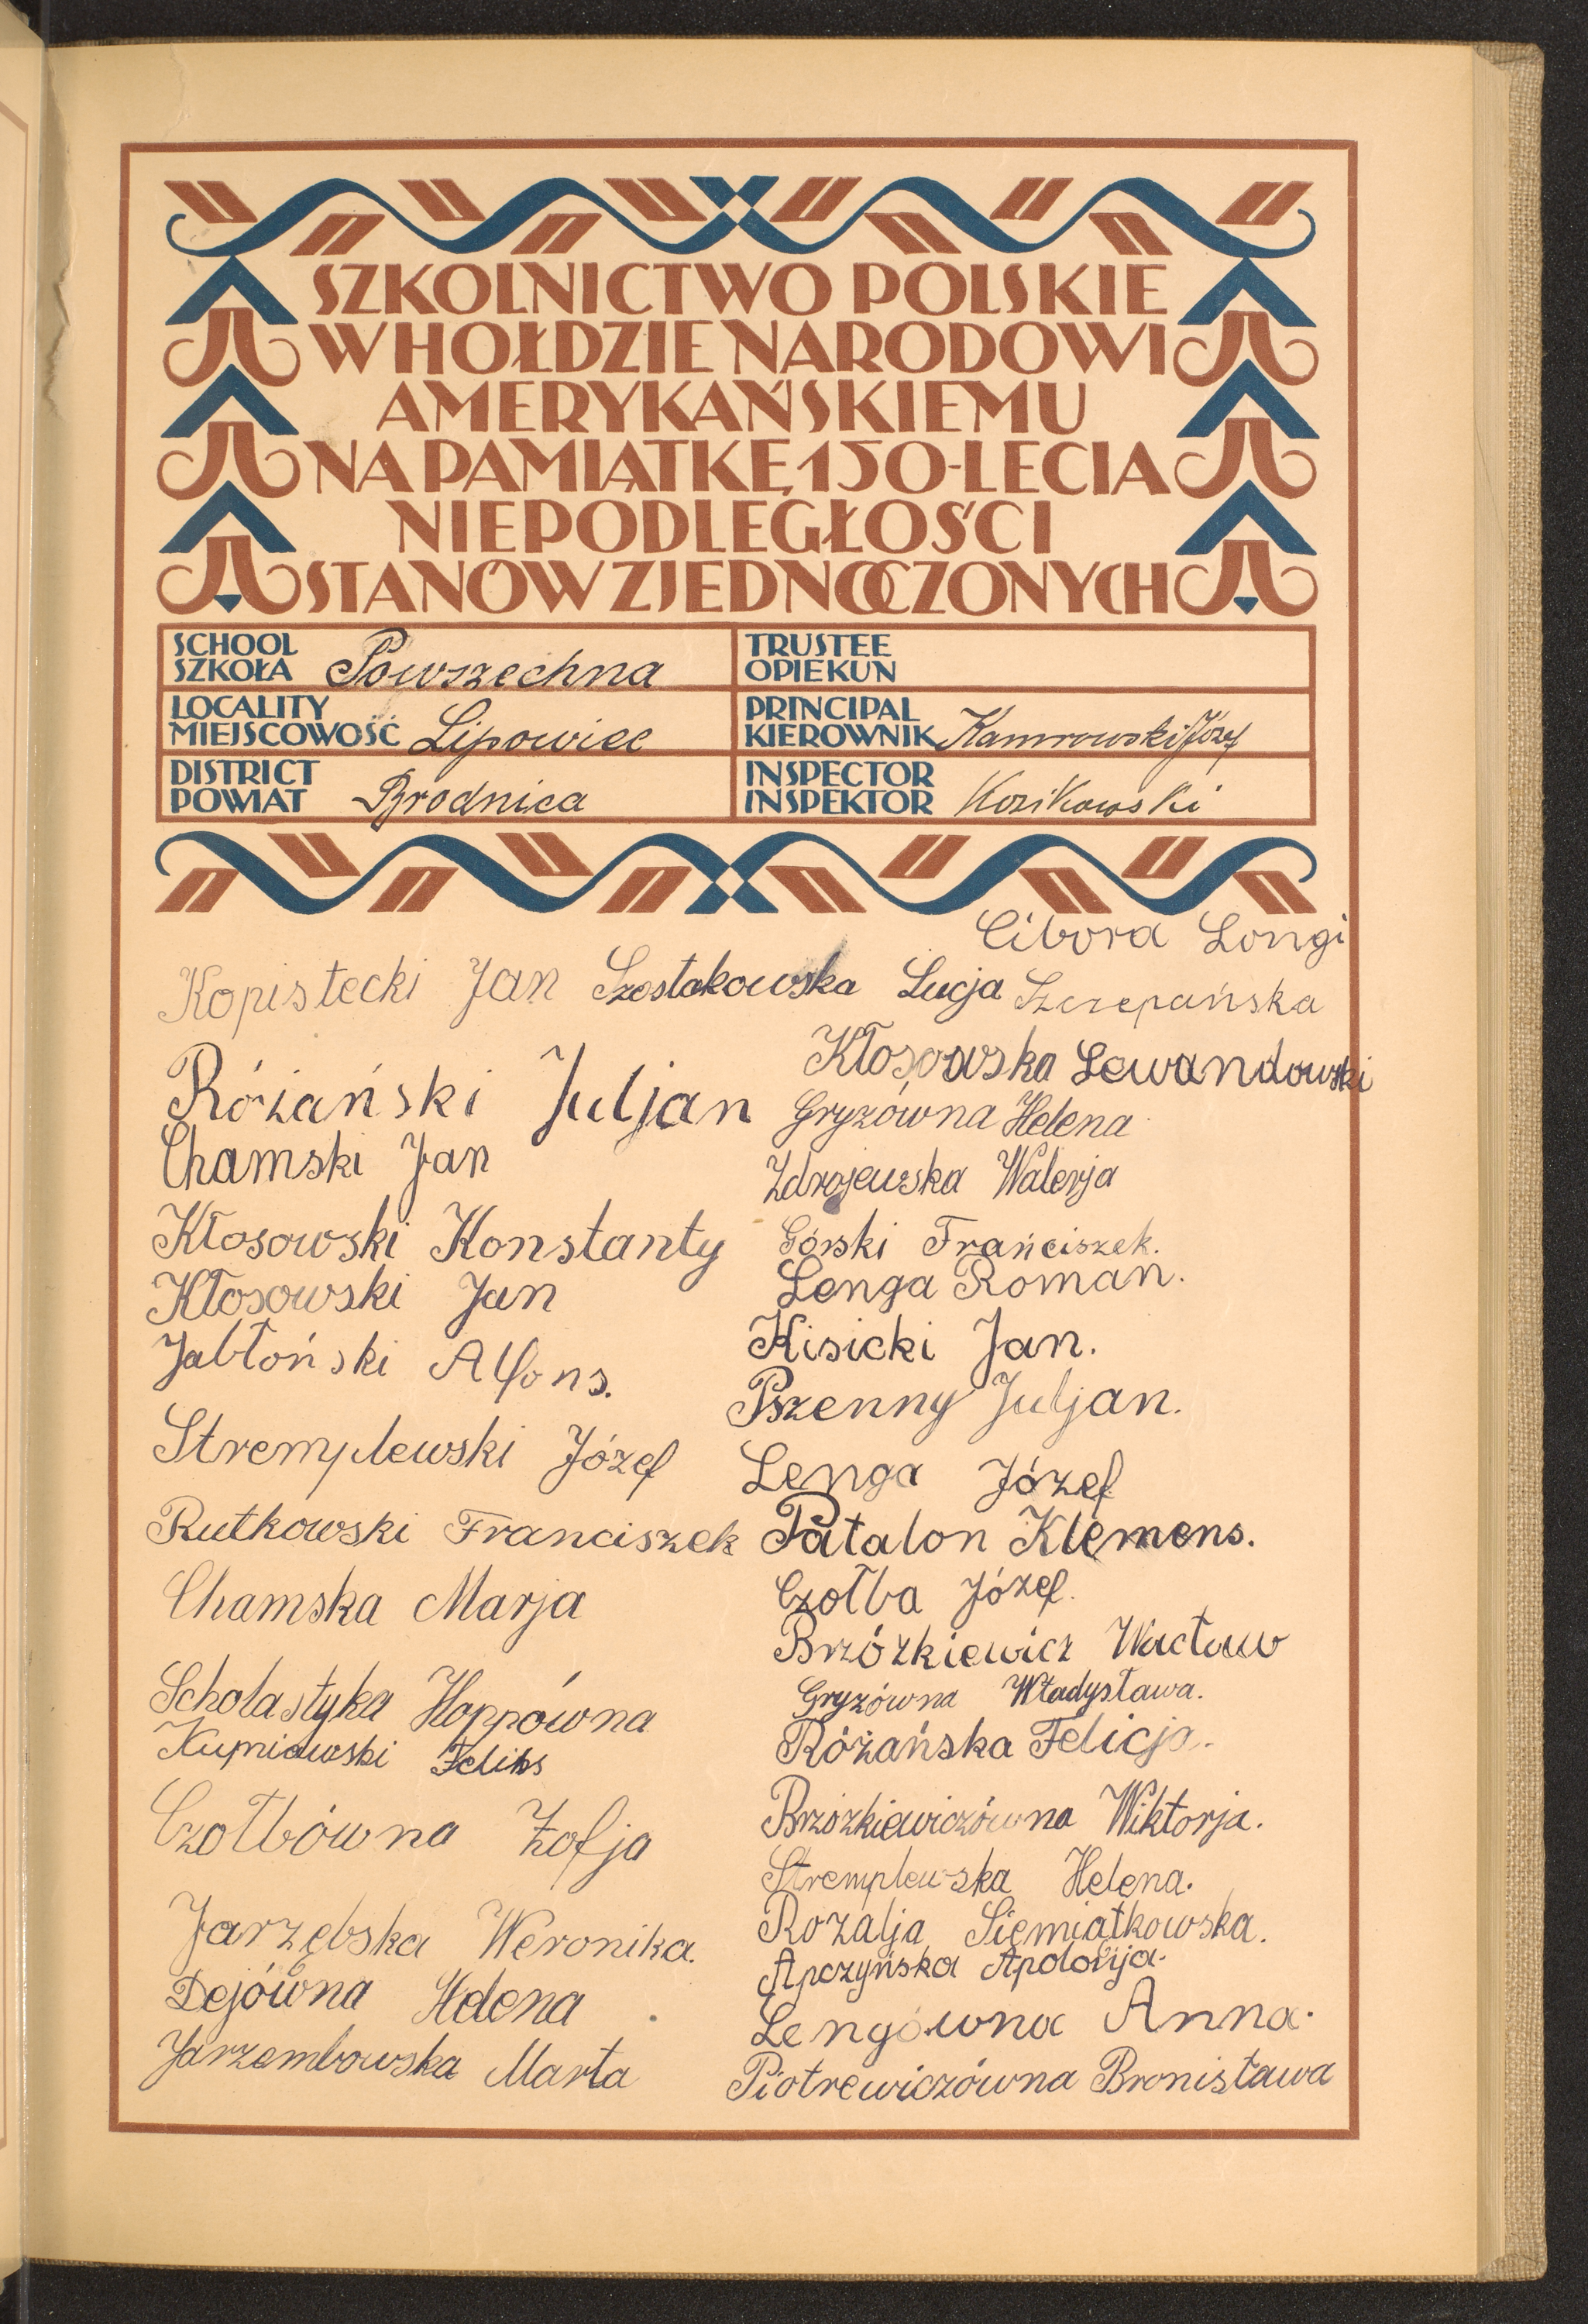 SZKOLNICTWO POLSKIE
W HOŁDZIE NARODOWI
AMERYKAŃSKIEMU
NA PAMIĄTKĘ 150-LECIA
NIEPODLEGŁOŚCI
STANÓW ZJEDNOCZONYCH
SCHOOL
SZKOŁA Powszechna
TRUSTEE
OPIEKUN
LOCALITY
MIEJSCOWOŚĆ Lipowiec
PRINCIPAL
KIEROWNIK Kamrowski Józef
DISTRICT
POWIAT Brodnica
INSPECTOR
INSPEKTOR Kozikowski
Cibora Longi
Kopistecki Jan Szostakowska Łucja Szczepańska
Różański Juljan
Chamski Jan
Kłosowski Konstanty
Kłosowski Jan
Jabłoński Alfons.
Stremplewski Józef
Rutkowski Franciszek
Chamska Marja
Scholastyka Hoppówna
Kupniewski Feliks
Czołbówna Zofja
Jarzębska Weronika.
Dejówna Helena
Jarzembowska Marta
Kłosowska Lewandowski
Gryzówna Helena
Zdrojewska Walerja
Górski Franciszek.
Lenga Roman.
Kisicki Jan.
Pszenny Juljan.
Lenga Józef
Patalon Klemens.
Czołba Józef.
Brzózkiewicz Wacław
Gryzówna Władysława.
Różańska Felicja.
Brzózkiewiczówna Wiktorja.
Stremplewska Helena.
Rozalja Siemiątkowska.
Apczyńska Apolonja.
Lengówna Anna.
Piotrewiczówna Bronisława